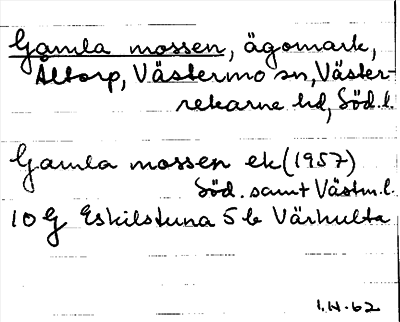 Gamla mossen, ägomark,
Åltorp, Västermo sn, Väster-
rekarne hd, Söd. l.
Gamla mossen ek (1957)
Söd. samt Västm. l.
10 G Eskilstuna 5 b Värhulta
I.H-62